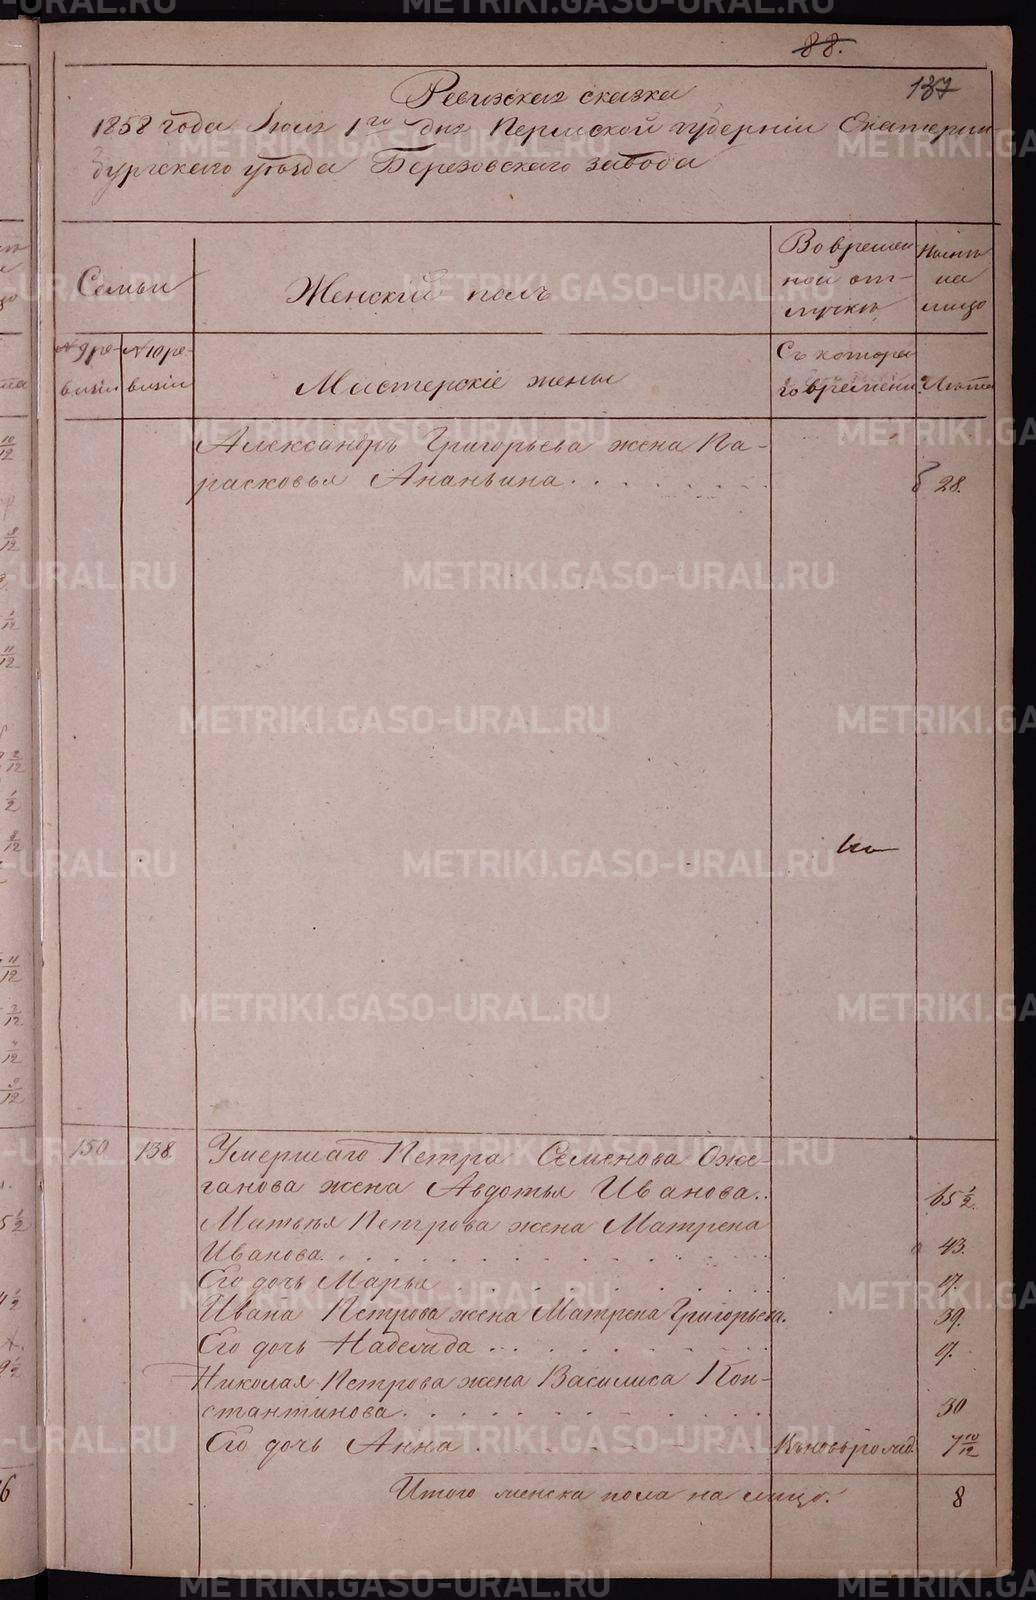 88.
137
Ревизская сказка
1858 года Июня 1го дня Пермской губерніи Екатерин-
бургскаго уѣзда Березовскаго завода
Семьи
Женскій полъ
Во времен-
ной от-
лучкѣ
Нынѣ
на
лицо
№ 9 ре-
визіи
№ 10 ре-
визіи
Мастерскіе жены
Съ котора-
го времени
Лѣта
Александръ Григорьева жена Па-
расковья Ананьина
28.
150
138
Умершаго Петра Семенова Оже-
ганова жена Авдотья Иванова..
65 1/2
Матвѣя Петрова жена Матрена
Иванова
43.
Его дочь Марья
Ивана Петрова жена Матрена Григорьева.
39.
Его дочь Надежда
Николая Петрова жена Василиса Кон-
стантинова
30
Его дочь Анна
7 10/12
Итого женска пола на лицо.
8
METRIKI.GASO-URAL.RU